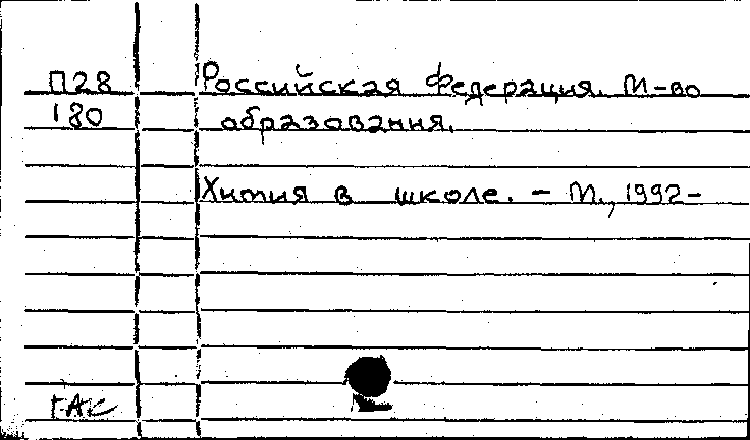 П28 Российская Федерация. М-во
180 образования.
Химия в школе. - М., 1992-
ГАС